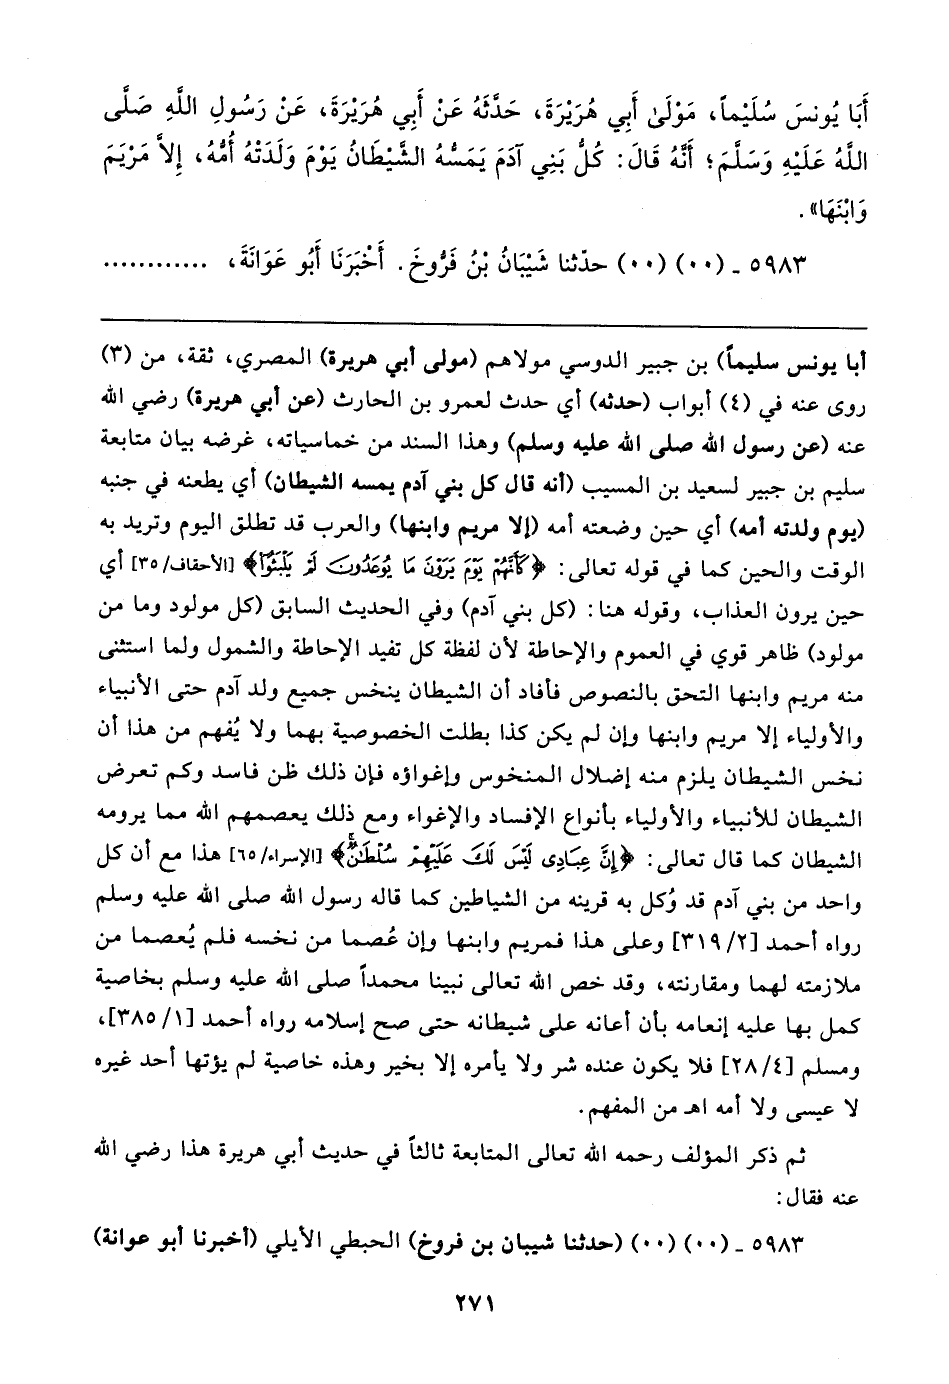 أَبَا يُونسَ سُلَيْماً، مَوْلَىٰ أَبِي هُرَيْرَةَ، حَدَّثَهُ عَنْ أَبِي هُرَيْرَةَ، عَنْ رَسُولِ اللَّهِ صَلَّى
اللَّهُ عَلَيْهِ وَسَلَّمَ؛ أَنَّهُ قَالَ: كُلُّ بَنِي آدَمَ يَمَسُّهُ الشَّيْطَانُ يَوْمَ وَلَدَتْهُ أُمُّهُ، إِلاَّ مَرْيَمَ
وَابْنَهَا».
٥٩٨٣ ـ (٠٠) (٠٠) حدّثنا شَيْبَانُ بْنُ فَرُّوخَ. أَخْبَرَنَا أَبُو عَوَانَةَ، ............
أبا يونس سليماً) بن جبير الدوسي مولاهم (مولى أبي هريرة) المصري، ثقة، من (٣)
روى عنه في (٤) أبواب (حدثه) أي حدث لعمرو بن الحارث (عن أبي هريرة) رضي الله
عنه (عن رسول الله صلى الله عليه وسلم) وهذا السند من خماسياته، غرضه بيان متابعة
سليم بن جبير لسعيد بن المسيب (أنه قال كل بني آدم يمسه الشيطان) أي يطعنه في جنبه
(يوم ولدته أمه) أي حين وضعته أمه (إلا مريم وابنها) والعرب قد تطلق اليوم وتريد به
الوقت والحين كما في قوله تعالى: ﴿كَأَنَّهُمْ يَوْمَ يَرَوْنَ مَا يُوعَدُونَ لَمْ يَلْبَثُوٓا۟﴾ [الأحقاف/ ٣٥] أي
حين يرون العذاب، وقوله هنا: (كل بني آدم) وفي الحديث السابق (كل مولود وما من
مولود) ظاهر قوي في العموم والإحاطة لأن لفظة كل تفيد الإحاطة والشمول ولما استثنى
منه مريم وابنها التحق بالنصوص فأفاد أن الشيطان ينخس جميع ولد آدم حتى الأنبياء
والأولياء إلا مريم وابنها وإن لم يكن كذا بطلت الخصوصية بهما ولا يُفهم من هذا أن
نخس الشيطان يلزم منه إضلال المنخوس وإغواؤه فإن ذلك ظن فاسد وكم تعرض
الشيطان للأنبياء والأولياء بأنواع الإفساد والإغواء ومع ذلك يعصمهم الله مما يرومه
الشيطان كما قال تعالى: ﴿إِنَّ عِبَادِى لَيْسَ لَكَ عَلَيْهِمْ سُلْطَٰنٌ﴾ [الإسراء/ ٦٥] هذا مع أن كل
واحد من بني آدم قد وُكل به قرينه من الشياطين كما قاله رسول الله صلى الله عليه وسلم
رواه أحمد [٢/ ٣١٩] وعلى هذا فمريم وابنها وإن عُصما من نخسه فلم يُعصما من
ملازمته لهما ومقارنته، وقد خص الله تعالى نبينا محمداً صلى الله عليه وسلم بخاصية
كمل بها عليه إنعامه بأن أعانه على شيطانه حتى صح إسلامه رواه أحمد [١/ ٣٨٥]،
ومسلم [٤/ ٢٨] فلا يكون عنده شر ولا يأمره إلا بخير وهذه خاصية لم يؤتها أحد غيره
لا عيسى ولا أمه اهـ من المفهم.
ثم ذكر المؤلف رحمه الله تعالى المتابعة ثالثاً في حديث أبي هريرة هذا رضي الله
عنه فقال:
٥٩٨٣ ـ (٠٠) (٠٠) (حدثنا شيبان بن فروخ) الحبطي الأيلي (أخبرنا أبو عوانة)
٢٧١